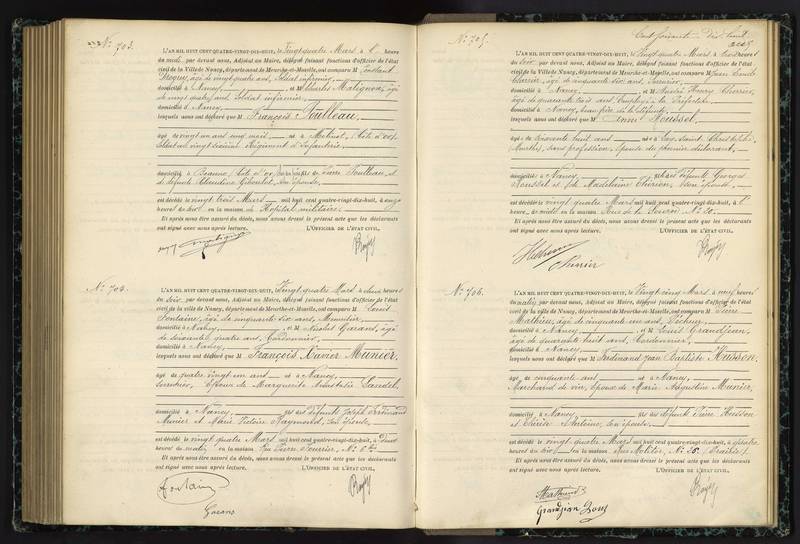 N° 703.
L'AN MIL HUIT CENT QUATRE-VINGT-DIX-HUIT, le Vingt quatre Mars à l' heure
du midi par devant nous, Adjoint au Maire, délégué faisant fonctions d'officier de l'état
civil de la Ville de Nancy, département de Meurthe-et-Moselle, ont comparu M Constant
âgé de vingt quatre ans, Soldat infirmier,
domicilié à Nancy, et M Charles Matignon, âgé
de vingt quatre ans Soldat infirmier,
domicilié à Nancy
lesquels nous ont déclaré que M François Poulleau,
âgé de vingt un ans cinq mois, né à Molinot, (Côte d'or)
Soldat au vingt sixième Régiment d'Infanterie,
domicilié à Beaune, (Côte d'or) fils de Pierre Poulleau et
de défunte Claudine son épouse,
est décédé le vingt trois Mars mil huit cent quatre-vingt-dix-huit, à onze
heures du soir en la maison de Hôpital militaire.
Et après nous être assuré du décès, nous avons dressé le présent acte que les déclarants
ont signé avec nous après lecture. L'OFFICIER DE L'ÉTAT CIVIL,
N° 704.
L'AN MIL HUIT CENT QUATRE-VINGT-DIX-HUIT, le Vingt quatre Mars à deux heures
du soir, par devant nous, Adjoint au Maire, délégué faisant fonctions d'officier de l'état
civil de la ville de Nancy, département de Meurthe-et-Moselle, ont comparu M Louis
Fontaine, âgé de cinquante six ans, Menuisier
domicilié à Nancy, et M Nicolas Garans, âgé
de soixante quatre ans, Cordonnier,
domicilié à Nancy
lesquels nous ont déclaré que M François Xavier Munier,
âgé de quatre vingt un ans né à Nancy,
Serrurier, Epoux de Marguerite Anastasie Gaudel,
domicilié à Nancy, fils des défunts Joseph Ferdinand
Munier et Marie Victoire Raymond, son épouse,
est décédé le vingt quatre Mars mil huit cent quatre-vingt-dix-huit, à deux
heures du matin, en la maison Rue Pierre Fourrier, N° 6 bis
Et après nous être assuré du décès, nous avons dressé le présent acte que les déclarants
ont signé avec nous après lecture. L'OFFICIER DE L'ÉTAT CIVIL,
Fontaine
Garans
Cent soixante dix huit
N° 705.
L'AN MIL HUIT CENT QUATRE-VINGT-DIX-HUIT, le Vingt quatre Mars à trois heures
du soir, par devant nous, Adjoint au Maire, délégué faisant fonctions d'officier de l'état
civil de la Ville de Nancy, département de Meurthe-et-Moselle, ont comparu M Jean
âgé de cinquante six ans,
domicilié à Nancy, et M André Henry
âgé de quarante trois ans, Employé à la Préfecture
domicilié à Nancy, beau frère de la défunte
lesquels nous ont déclaré que M Aimée Houssel,
âgée de soixante huit ans née à
(Meurthe), sans profession, épouse du premier déclarant,
domiciliée à Nancy, fille des défunts Georges
Houssel et de Madeleine Thirion, son épouse,
est décédée le vingt quatre Mars mil huit cent quatre-vingt-dix-huit, à l'
heure du midi en la maison Rue de la Source N° 20.
Et après nous être assuré du décès, nous avons dressé le présent acte que les déclarants
ont signé avec nous après lecture. L'OFFICIER DE L'ÉTAT CIVIL,
N° 706.
L'AN MIL HUIT CENT QUATRE-VINGT-DIX-HUIT, le Vingt cinq Mars à neuf heures
du matin, par devant nous, Adjoint au Maire, délégué faisant fonctions d'officier de l'état
civil de la ville de Nancy, département de Meurthe-et-Moselle, ont comparu M Pierre
Mathieu, âgé de cinquante un ans,
domicilié à Nancy, et M Louis Grandjean,
âgé de quarante huit ans, Cordonnier,
domicilié à Nancy
lesquels nous ont déclaré que M Ferdinand Jean Baptiste Husson,
âgé de cinquante ans né à Nancy,
Marchand de vin, Epoux de Marie Augustine Munier,
domicilié à Nancy, fils des défunts Pierre Husson
et Thérèse Antoine, son épouse,
est décédé le vingt quatre Mars mil huit cent quatre-vingt-dix-huit, à quatre
heures du soir, en la maison Rue Molitor, N° 25
Et après nous être assuré du décès, nous avons dressé le présent acte que les déclarants
ont signé avec nous après lecture. L'OFFICIER DE L'ÉTAT CIVIL,
Grandjean Louis